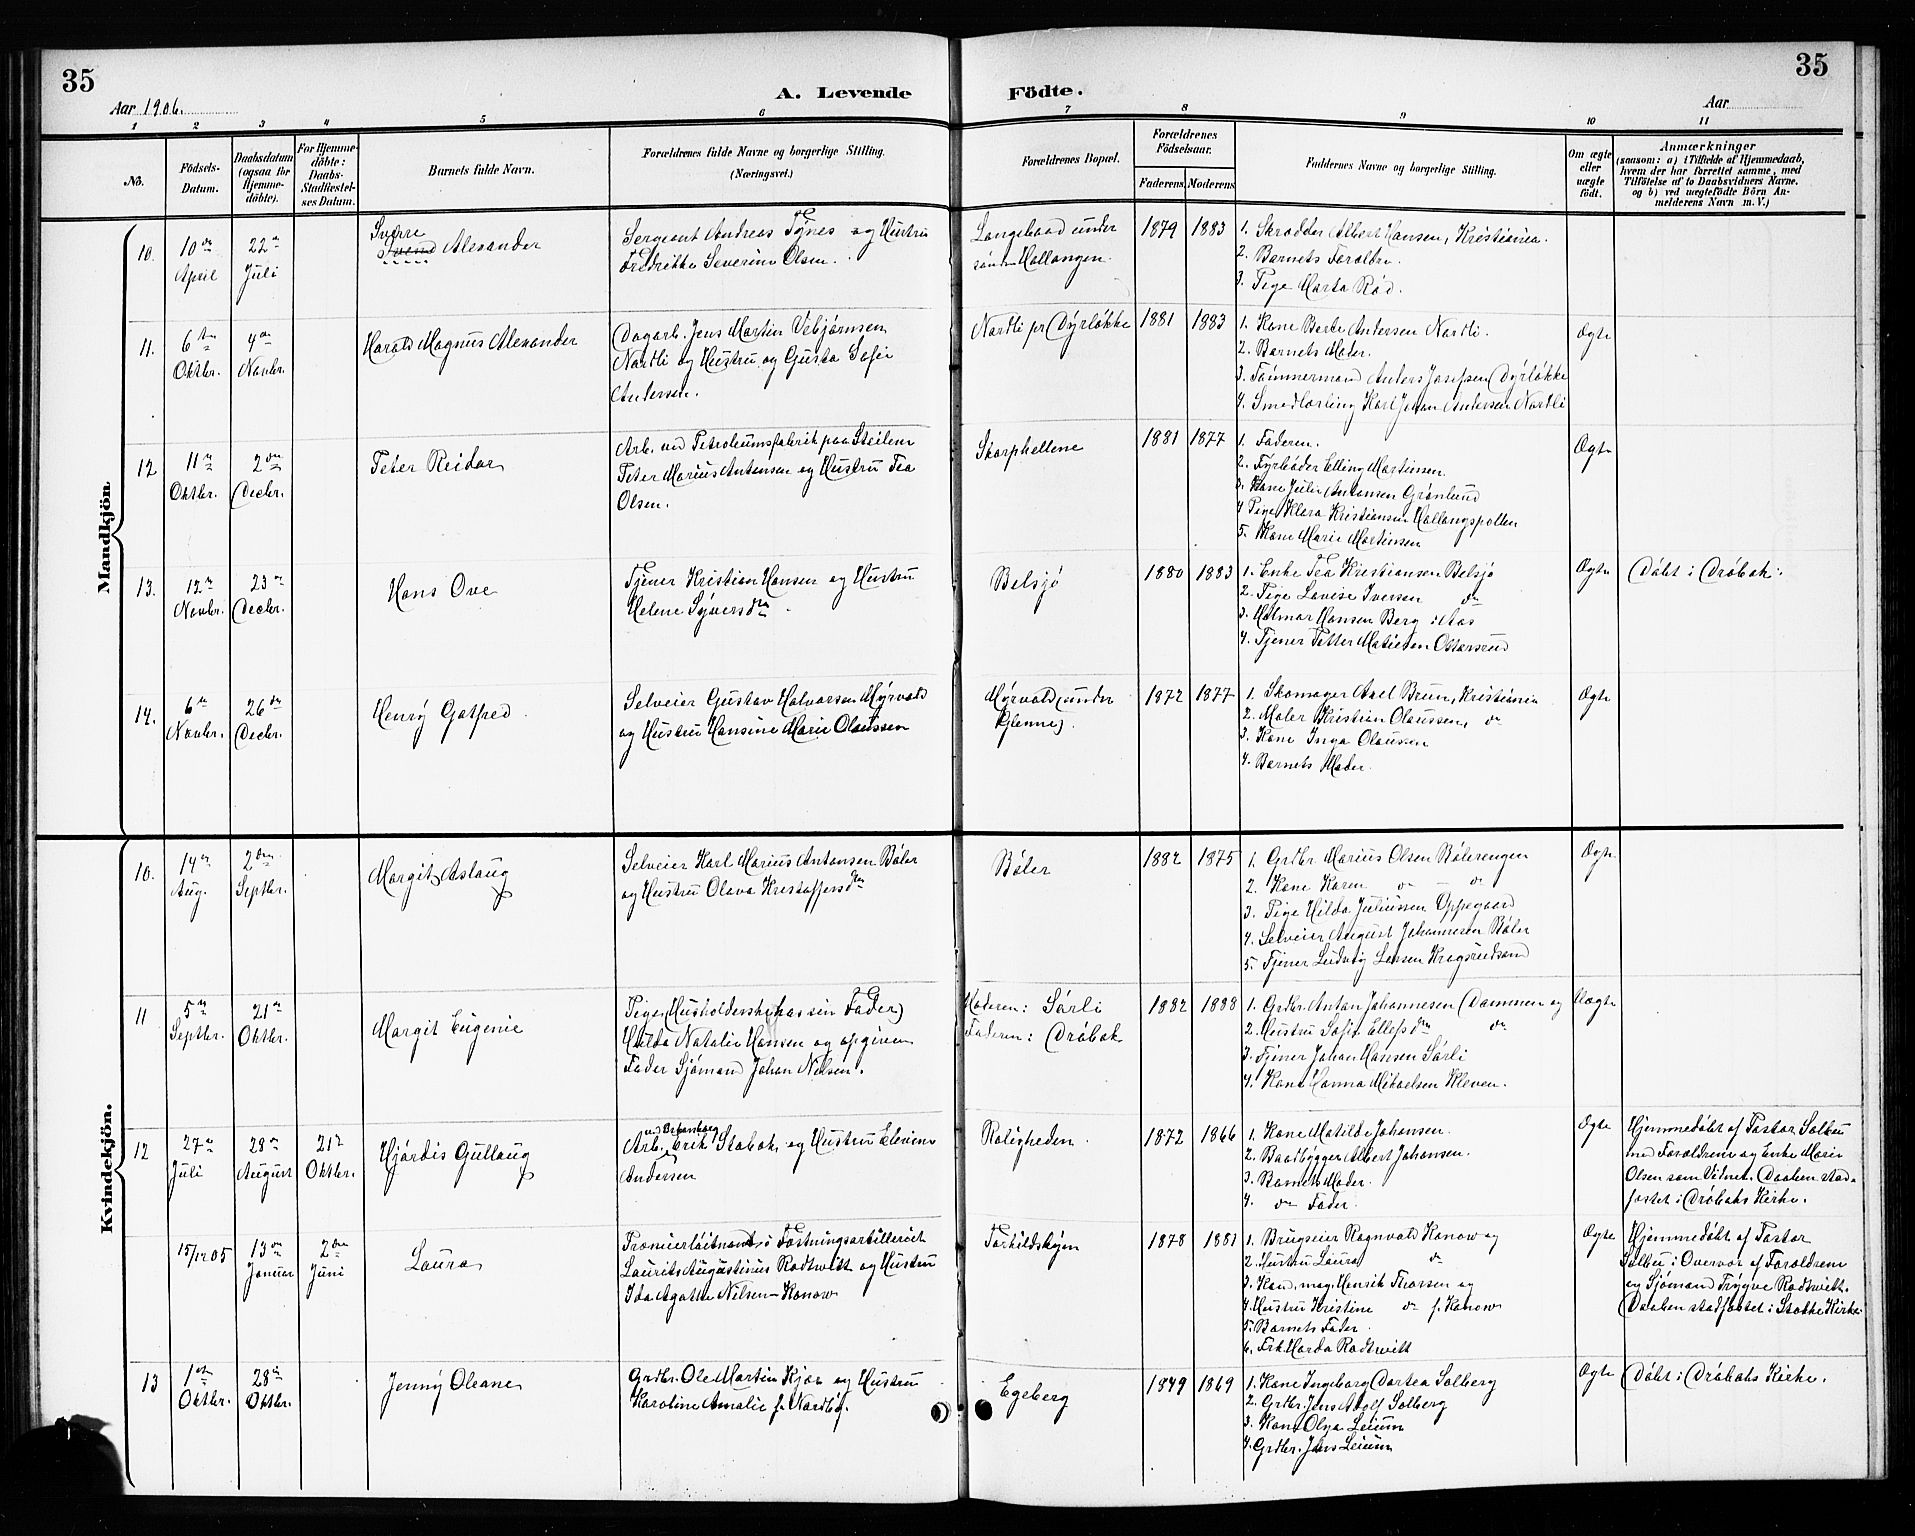 35
Aar 1906.
A. Levende
Födte.
35
Aar
1 2 3 4 5 6 7 8 9 10 11
No.
Födsels-Datum.
Daabsdatum (ogsaa for Hjemme-döbte).
For Hjemme-döbte: Daabs-Stadfæstel-ses Datum.
Barnets fulde Navn.
Forældrenes fulde Navne og borgerlige Stilling.
(Næringsvei.)
Forældrenes Bopæl.
Forældrenes Födselsaar.
Faderens Moderens
Faddernes Navne og borgerlige Stilling.
Om ægte eller uægte födt.
Anmærkninger
(saasom: a) i Tilfælde af Hjemmedaab,
hvem der har forrettet samme, med
Tilföielse af to Daabsvidners Navne.
og b) ved uægtefödte Börn An-
melderens Navn m. V.)
Mandkjön
10.
10de April
22de Juli
Sverre
Alexander
Sergeant Andreas Tynes og Hustru
Fredrikke Severine Olsen.
Langebaad under
søndre Hallangen.
1879 1883
1. Skrædder Albert Hansen, Kristiania.
2. Barnets Forældre.
3. Pige Marta Rød.
11.
6te Oktbr.
4de Novbr.
Harald Magnus Alexander
Dagarb. Jens Martin Vebjørnsen
Nordli og Hustru og Gusta Sofie
Andersen.
Nordli pr Dyrløkke
1881 1883
Ægte
1. Kone Berte Andersen Nordli.
2. Barnets Moder.
3. Tømmermand Anders Josefsen Dyrløkke
4. Smedlærling Karl Johan Andersen Nordli
12
11te Oktbr.
2den Decbr.
Peter Reidar
Arb. ved Petroleumsfabrik paa Steilene
Peter Marius Antonsen og Hustru Tea
Olsen.
Skorphellene
1881 1877
Ægte
1. Faderen.
2. Fyrbøder Elling Martinsen.
3. Kone Julie Antonsen Grønlund
4 Pige Klara Kristiansen Hallangspollen
5. Kone Marie Martinsen
13.
12te Novbr.
23de Decbr.
Hans Ove
Tjener Kristian Hansen og Hustru
Helene Syversdtr.
Belsjø
1880 1883
Ægte
Døbt i Drøbak.
1. Enke Tea Kristiansen Belsjø
2. Pige Lovise Iversen do
3. Halmar Hansen Berg i Aas
4. Tjener Petter Matiesen Ottarsrud
14.
6te Novbr.
26de Decbr.
Henry Gotfred
Selveier Gustav Halvorsen Myrvold
og Hustru Hansine Marie Olaussen
Myrvold (under
Glenne).
1872 1877
Ægte
1. Skomager Axel Brun, Kristiania
2. Maler Kristian Olaussen, do
3. Kone Inga Olaussen
4. Barnets Moder.
Kvindekjön.
10.
14de Aug.
2den Septbr.
Margit Aslaug
Selveier Karl Marius Antonsen Bøler
og Hustru Olava Kristoffersdtr
Bøler
1882 1875
Ægte
1. Grdbr. Marius Olsen Bølerengen
2. Kone Karen do - do
3. Pige Hilda Juliussen Oppegaard
4. Selveier August Johannesen Bøler
5. Tjener Ludvig Larsen Kragsrudsand
11
5te Septbr.
21de Oktbr.
Margit Eugenie
Pige (Husholderske hos sin Fader)
Hulda Natalie Hansen og opgiven
Fader Sjømand Johan Nilsen.
Moderen: Sørli
Faderen: Drøbak
1882 1888
Uægte
1. Grdbr. Anton Johannesen Dammen og
2. Hustru Sofie Ellefsdtr do
3. Tjener Johan Hansen Sørli
4. Kone Hanna Mikaelsen Kleven.
12
27de Juli
28de August
21de Oktbr.
Hjørdis Gullaug
Arb. Erik Stabæk og Hustru Elevine
Andersen
Roligheden.
1872 1866
Ægte
1. Kone Matilde Johansen.
2. Baadbygger Albert Johansen.
3. Barnets Moder.
4. do Fader.
Hjemmedøbt af Pastor Solheu
med Forældrene og Enke Marie
Olsen som Vidner. Daaben stad-
fæstet i Drøbaks Kirke.
15/12 05
13de Januar
2den Juni
Laura
Premierløitnant i Fæstningsartilleriet
Laurits Augustinus Rodtwitt og Hustru
Ida Agathe Nilsen-Konow
Torkildskjøn
1878 1881
Ægte
1. Brugseier Ragnvald Konow og
2. Hustru Laura do
3. Kand. mag. Henrik Thorsen og
4. Hustru Kristine do f. Konow
5. Barnets Fader.
6. Frk. Marda Rodtwitt
Hjemmedøbt af Pastor
Solheu i Overvær af Forældrene
og Sjømand Trygve Rodtwitt.
Daaben stadfæstet i Stokke Kirke
13
1ste Oktbr.
28de Oktbr.
Jenny Oleane
Grdbr. Ole Martin Kjær og Hustru
Karoline Amalie f. Nordby.
Egeberg
1849 1869
Ægte
Døbt i Drøbaks Kirke.
1. Kone Ingeborg Dortea Solberg
2. Grdbr. Jens Adolf Solberg
3. Kone Olga Leium
4. Grdbr. Jens Leium